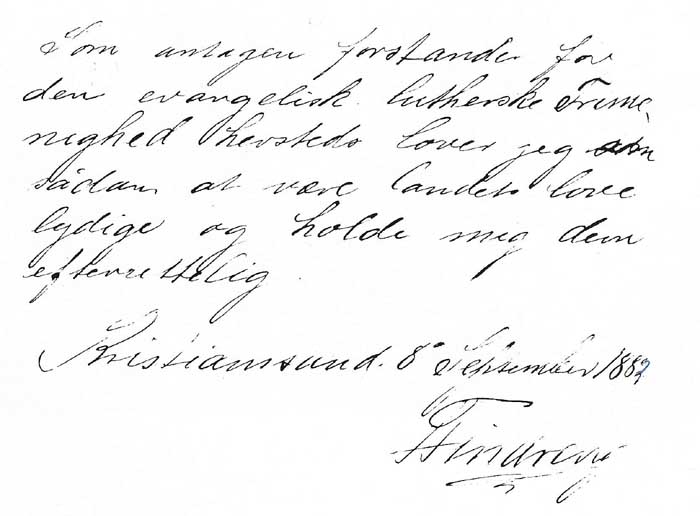 Som antagen forstander for
den evangelisk lutherske Frime,
nighed hersteds lover jeg som
sådan at være landets love
lydige og holde mig dem
efterrettelig.
Kristiansund. 8 September 1882